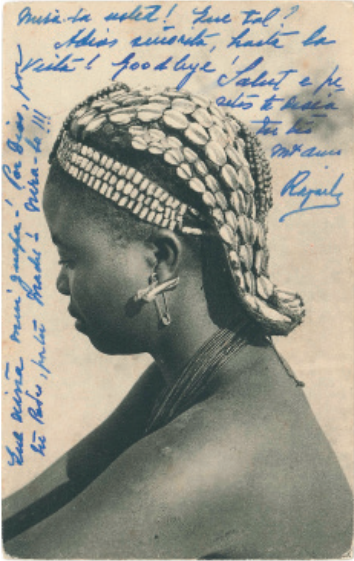 Mira-la noletl! Que tal?
Adios señorita, hasta la
Vista! Goodbye! Salut e pe
tu tio
Rafael
Que niña mui guapa! Por Dios, por
tu Padre, por tu Madre! Mira-lo!!!